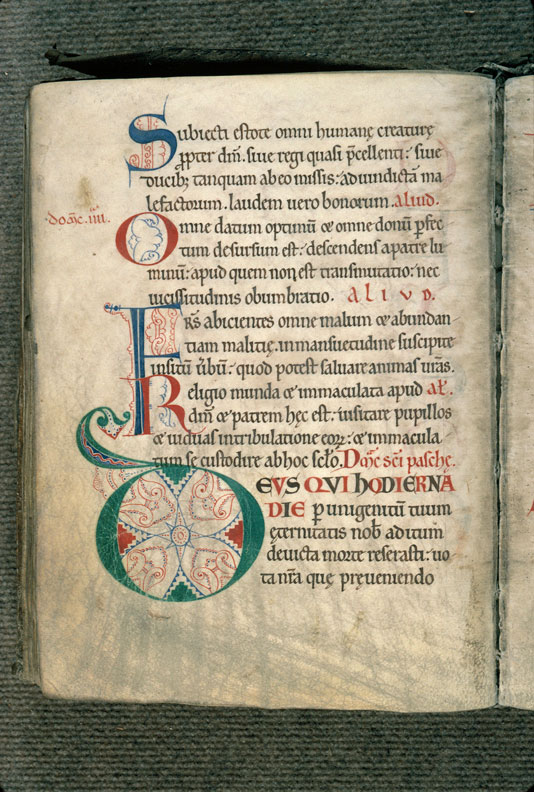 Subiecti estote omni humanę creaturę
ꝓpter dm̄. siue regi quasi p̄cellenti. siue
ducib; tanquam ab eo missis. ad uindictā ma
lefactorum. laudem uero bonorum. aliud.
dom̄c. iiii.
Omne datum optimū & omne donū ꝑfec
tum desursum est. descendens a patre lu
minū. apud quem non est transmutatio. nec
uicissitudinis obumbratio. ALIVD.
FRS̄ abicientes omne malum & abundan
tiam malitię. in mansuetudine suscipite
insitū u̇bū. quod potest saluare animas ur̄as.
Religio munda & immaculata apud al̄.
dm̄ & patrem hęc est. uisitare pupillos
& uiduas in tribulatione eoꝝ. & immacula
tum se custodire ab hoc sc̄lo. Dom̄c sc̄i paschę.
DEVS QVI HODIERNA
DIE ꝑ unigenitū tuum
ęternitatis nob̄ aditum
deuicta morte reserasti. uo
ta nr̄a quę pręueniendo